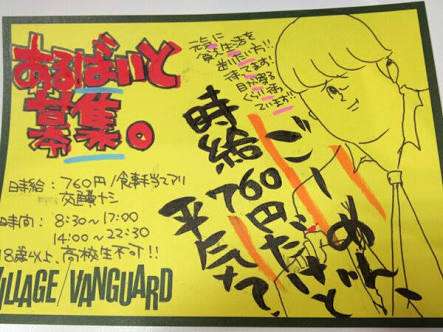 あるばいと
募集。
元気に
食える生活を
送りたい方!!
待ってます!
ています!!
ごーめん、
時給760円だけど
平気で、
時給:760円/食事手当てアリ
交通費ナシ
時間:8:30〜17:00
14:00〜22:30
18歳以上、高校生不可!!
VILLAGE/VANGUARD